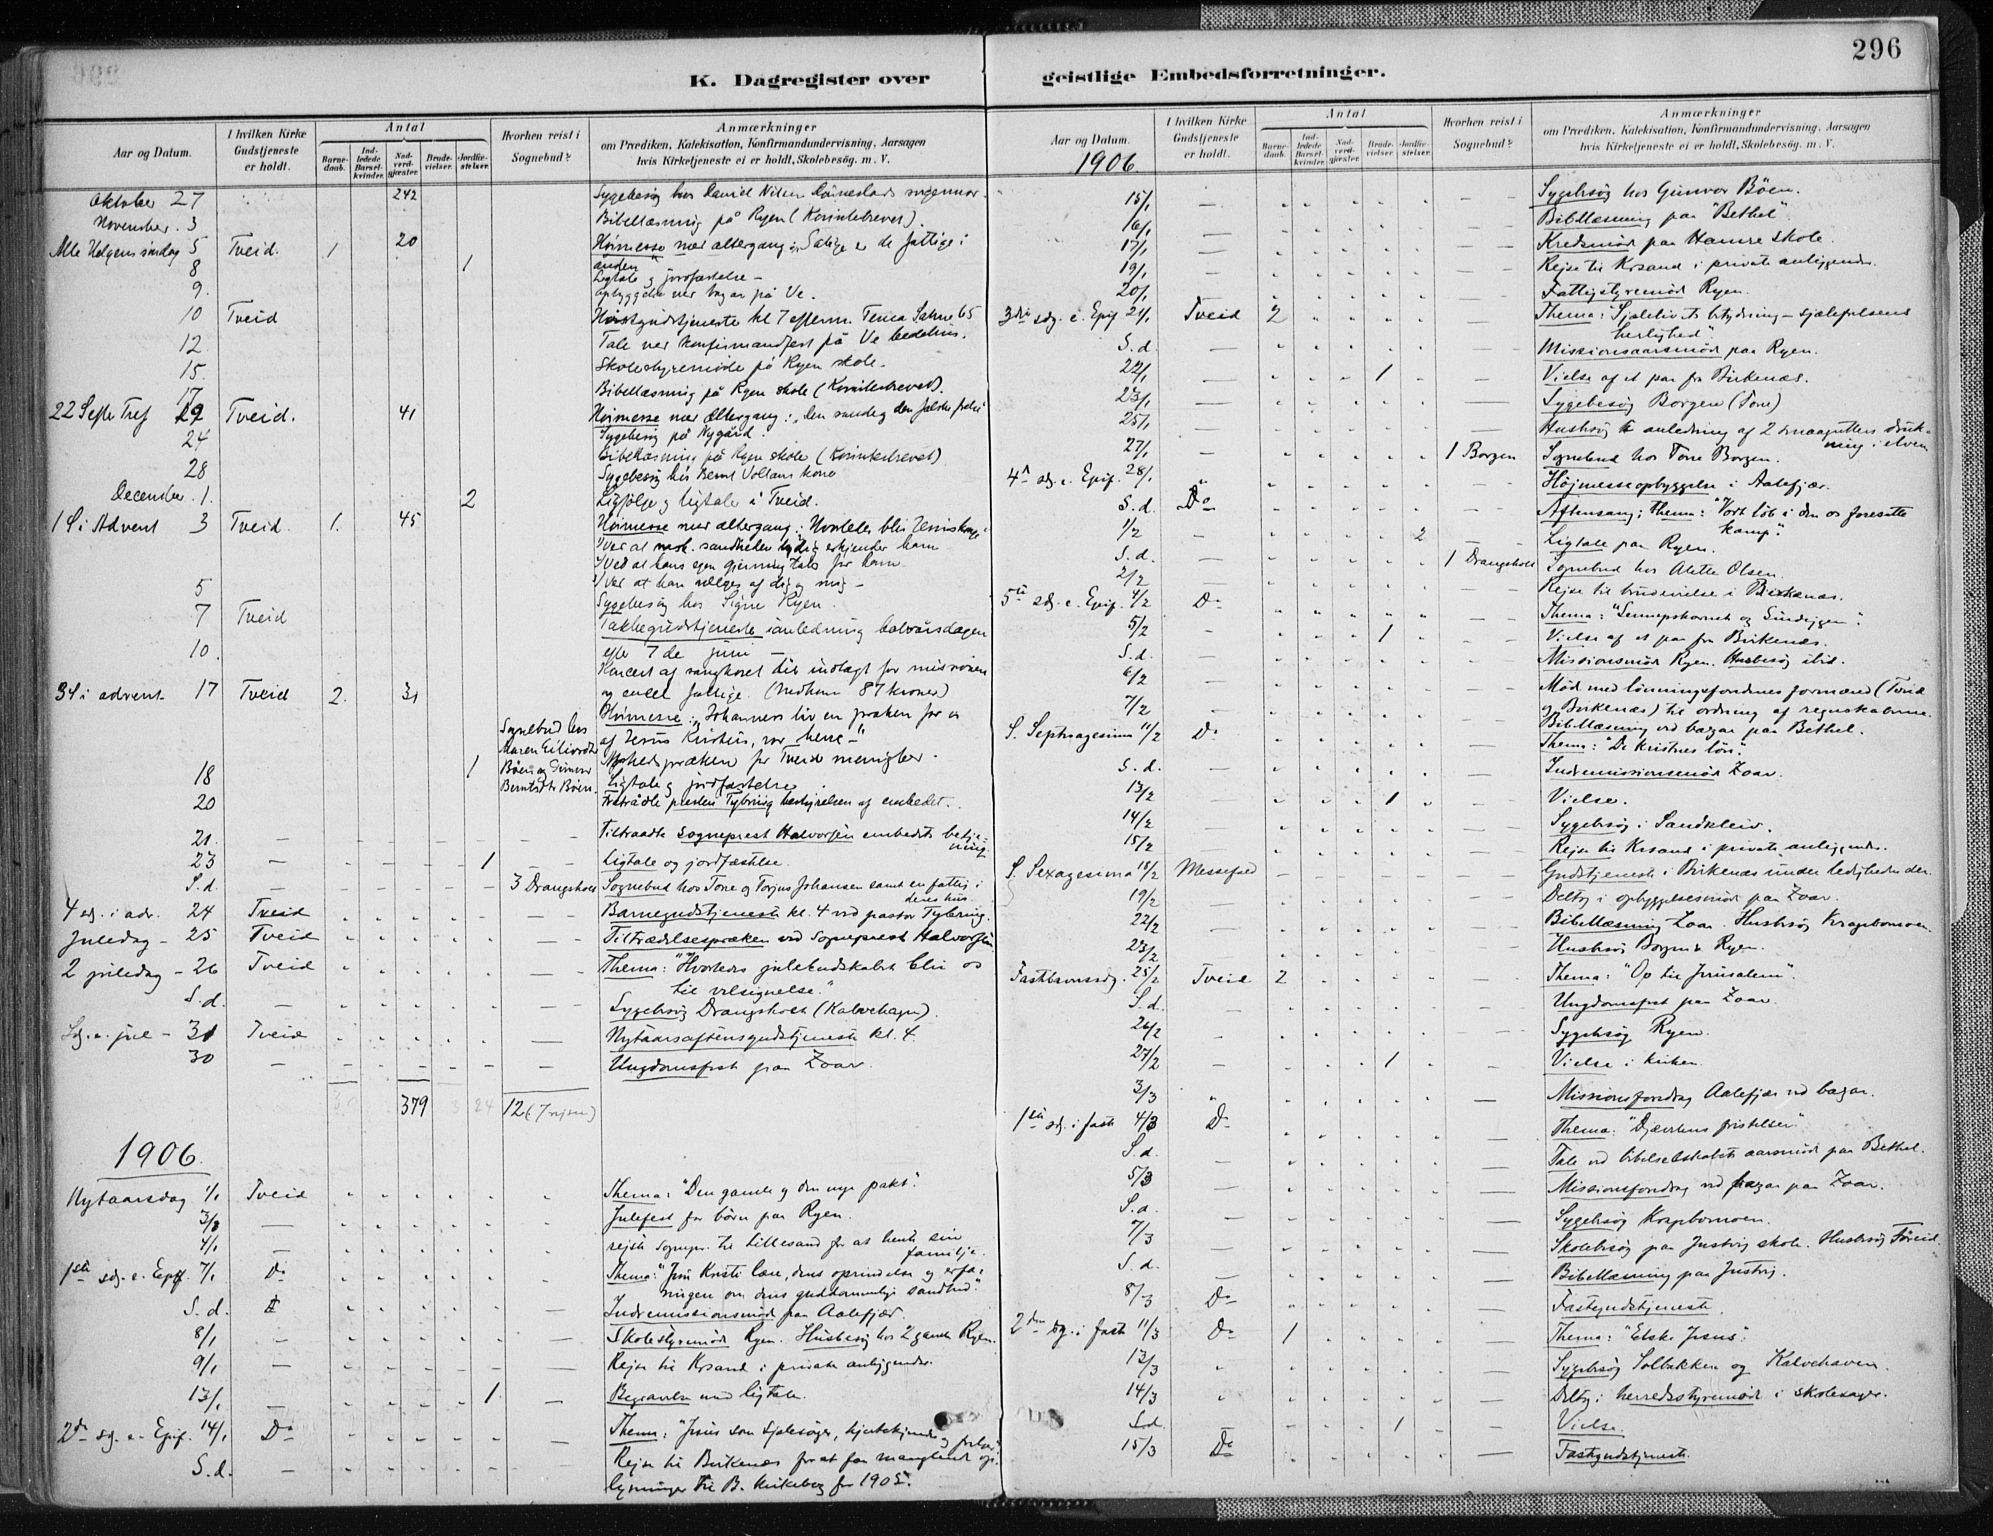 296
K. Dagregister over geistlige Embedsforretninger.
Aar og Datum. I hvilken Kirke Gudstjeneste er holdt. Antal Barnedaab. Indledede Barselkvinder. Nadverdgjæster. Brudevielser. Jordfæstelser. Hvorhen reist i Sognebud? Anmærkninger om Prædiken, Katekisation, Konfirmandundervisning, Aarsagen hvis Kirketjeneste ei er holdt, Skolebesøg. m. V.
Oktober 27 242 Sygebesøg hos David Nilsen
November. 3 Bibellæsning på Ryen (Korinterbrevet).
Alle Helgens søndag 5 Tveid. 1 20 Høimesse mer altergang: "Salige er de fattige i
ånden"
8 1 Ligtale og jordfæstelse –
9. Opbyggelse ver bazar på Ve.
10 Tveid Høstgudstjeneste kl 7 efterm.
12. Tale ver Konfirmandfest på Ve bedehus.
15. Skolestyremøde på Ryen skole.
17 Bibellæsning på Ryen skole (Korinterbrevet).
22 S efter Tref 19 Tveid. 41 Høimesse mer altergang: "den sande og den falske
Sygebesøg på Nygård.
24 Bibellæsning på Ryen skole (Korinterbrevet)
28 Sygebesøg hos Bernt kone
December. 1. 2 Ligfølge og ligtale i Tveid.
1 S i Advent 3 Tveid. 1. 45 Høimesse mer altergang:
1/ Ver at sandheden erkjender ham
2/ Ved at hans egen gjerning taler for ham
3/ Ver at han vælges af dig og mig –
5 Sygebesøg hos Signe Ryen.
7 Tveid Takkegudstjeneste i anledning halvårsdagen
efter 7de juni –
10. Koncert af sangkoret til indtægt for missionen
og fattige. (87 kroner)
3 S i advent 17 Tveid 2. 31 Høimesse: "Johannes liv en præken for os
af Jesus Kristus, vor herre –"
Sognebud hos Maren Bøen og Gunvor Berntsdtr Bøen. Afskedspræken for Tveid menigher.
18 1 Ligtale og jordfæstelse
20 Fratrådte presten Tybring bestyrelsen af embedet.
21. – Tiltraadte sogneprest Halvorsen embedets betje-
ning.
23 – 1 Ligtale og jordfæstelse.
S.d. – 3 Drangsholt Sognebud hos Tone og Torjus Johansen samt en fattig i
deres hus.
4 sg. i adv. 24 Tveid Barnegudstjeneste kl. 4 ved pastor Tybring.
Juledag – 25 Tveid Tiltrædelsespræken ved Sogneprest Halvorsen
2 juledag – 26 Tveid Thema: "Hvorledes julebudskabet blir os
til velsignelse."
S.d. – Sygebesøg Drangsholt (Kalvehagen).
Sdg. e. jul – 31 Tveid Nytaarsaftensgudstjeneste kl. 4.
30 – Ungdomsfest paa Zoar.
379 24 12 (7 rejser)
1906.
Nytaarsdag 1/1 Tveid Thema: "Den gamle og den nye pakt".
3/1 – Julefest for børn paa Ryen.
4/1 – rejste Sognepr. til Lillesand for at hente sin
familje.
1ste sdg. e. Epif. 7/1 Do Thema: "Jesu Kristi lære, dens oprindelse og erfa-
ringen om dens guddommelige sandhed".
S.d. Indremissionsmøde paa Aalefjær.
8/1 – Skolestyremøde Ryen. Husbesøg hos 2 gamle Ryen.
9/1 – Rejse til Krsand i private anliggender.
13/1 – 1 Begravelse med ligtale.
2den sdg. e. Epif. 14/1 Do Thema: "Jesus som sjælesøger, hjertekjender og frelser".
S.d. – Rejse til Birkenæs for at faa manglende op-
lysninger til B. kirkebog for 1905.
Aar og Datum. I hvilken Kirke Gudstjeneste er holdt. Antal Barnedaab. Indledede Barselkvinder. Nadverdgjæster. Brudevielser. Jordfæstelser. Hvorhen reist i Sognebud? Anmærkninger om Prædiken, Katekisation, Konfirmandundervisning, Aarsagen hvis Kirketjeneste ei er holdt, Skolebesøg. m. V.
1906.
15/1 – Sygebesøg hos Gunvor Bøen.
16/1 – Bibellæsning paa "Bethel".
17/1 – Kredsmøde paa Hamre skole.
19/1 – Rejse til Krsand i private anliggender.
20/1 – Fattigstyremøde Ryen.
3die sdg. e. Epif. 21/1 Tveid 2 Thema: "Sjælelivets betydning – sjælefrelsens
herlighed".
S.d. – Missionsaarsmøde paa Ryen.
22/1 – 1 Vielse af et par fra Birkenæs.
23/1 – Sygebesøg Borgen (Tone)
25/1 – Husbesøg i anledning af 2 smaagutters druk-
ning i elven
27/1 – 1 Borgen Sognebud hos Tone Borgen.
4de sdg. e. Epif. 28/1 " Højmesseopbyggelse i Aalefjær.
S.d. Do Aftensang; thema: "Vort løb i den os foresatte
kamp".
1/2 – 2 Ligtale paa Ryen.
S.d. – 1 Drangsholt Sognebud hos Alette Olsen.
2/2 – Rejse til brudevielse i Birkenæs.
5te sdg. e. Epif. 4/2 Do Thema: "Sennepskornet og Surdejgen".
5/2 – 1 Vielse af et par fra Birkenæs.
S.d. – Missionsmøde Ryen. Husbesøg ibid.
6/2 – Møde med lønningsfondenes formænd (Tveid
og Birkenæs) til ordning af regnskaberne.
7/2 – Bibellæsning ved bazar paa Bethel.
S. Septuagesima 11/2 Do Thema: "De kristnes løn".
S.d. – Indremissionsmøde Zoar.
13/2 – 1 Vielse.
14/2 – Sygebesøg i Sandkleiv.
15/2 – Rejse til Krsand i private anliggender.
S. Sexagesima 18/2 Messefald Gudstjeneste i Birkenæs under ledigheden der.
19/2 – Deltog i opbyggelsesmøde paa Zoar.
22/2 – Bibellæsning Zoar. Husbesøg Krapbomoen.
23/2 Husbesøg Borgen & Ryen.
Fastelavnssdg. 25/2 Tveid 2 Thema: "Op til Jerusalem".
S.d. – Ungdomsfest paa Zoar.
26/2 – Sygebesøg Ryen.
27/2 – 1 Vielse i kirken.
3/3 " Missionsforedrag Aalefjær ved bazar.
1ste sdg. i faste 4/3 Do Thema: "Djævelens fristelser"
S.d. Tale ved bibelselskabets aarsmøde paa Bethel.
5/3 – Missionsforedrag ved bazar paa Zoar.
S.d. – Sygebesøg Krapbomoen.
7/3 – Skolebesøg paa Justvig skole. Husbesøg Føreid.
S.d. – Bibellæsning paa Justvig.
8/3 Do Fastegudstjeneste.
2den sdg. i faste 11/3 Do 1 Thema: "Elske Jesus".
13/3 " Sygebesøg Solbakken og Kalvehaven.
14/3 " Deltog i herredsstyremøde i skolesager.
S.d. – 1 Vielse.
15/3 Do Fastegudstjeneste.